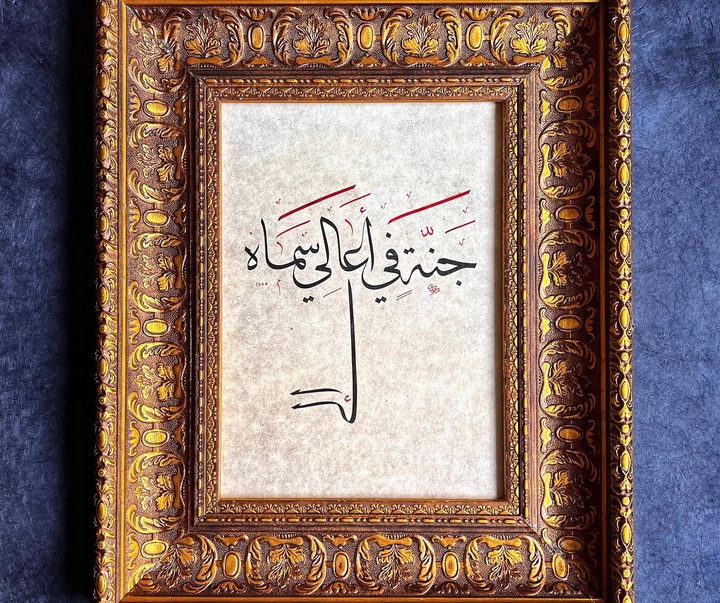 جَنّةٌ في أَعَالي سَمَاه